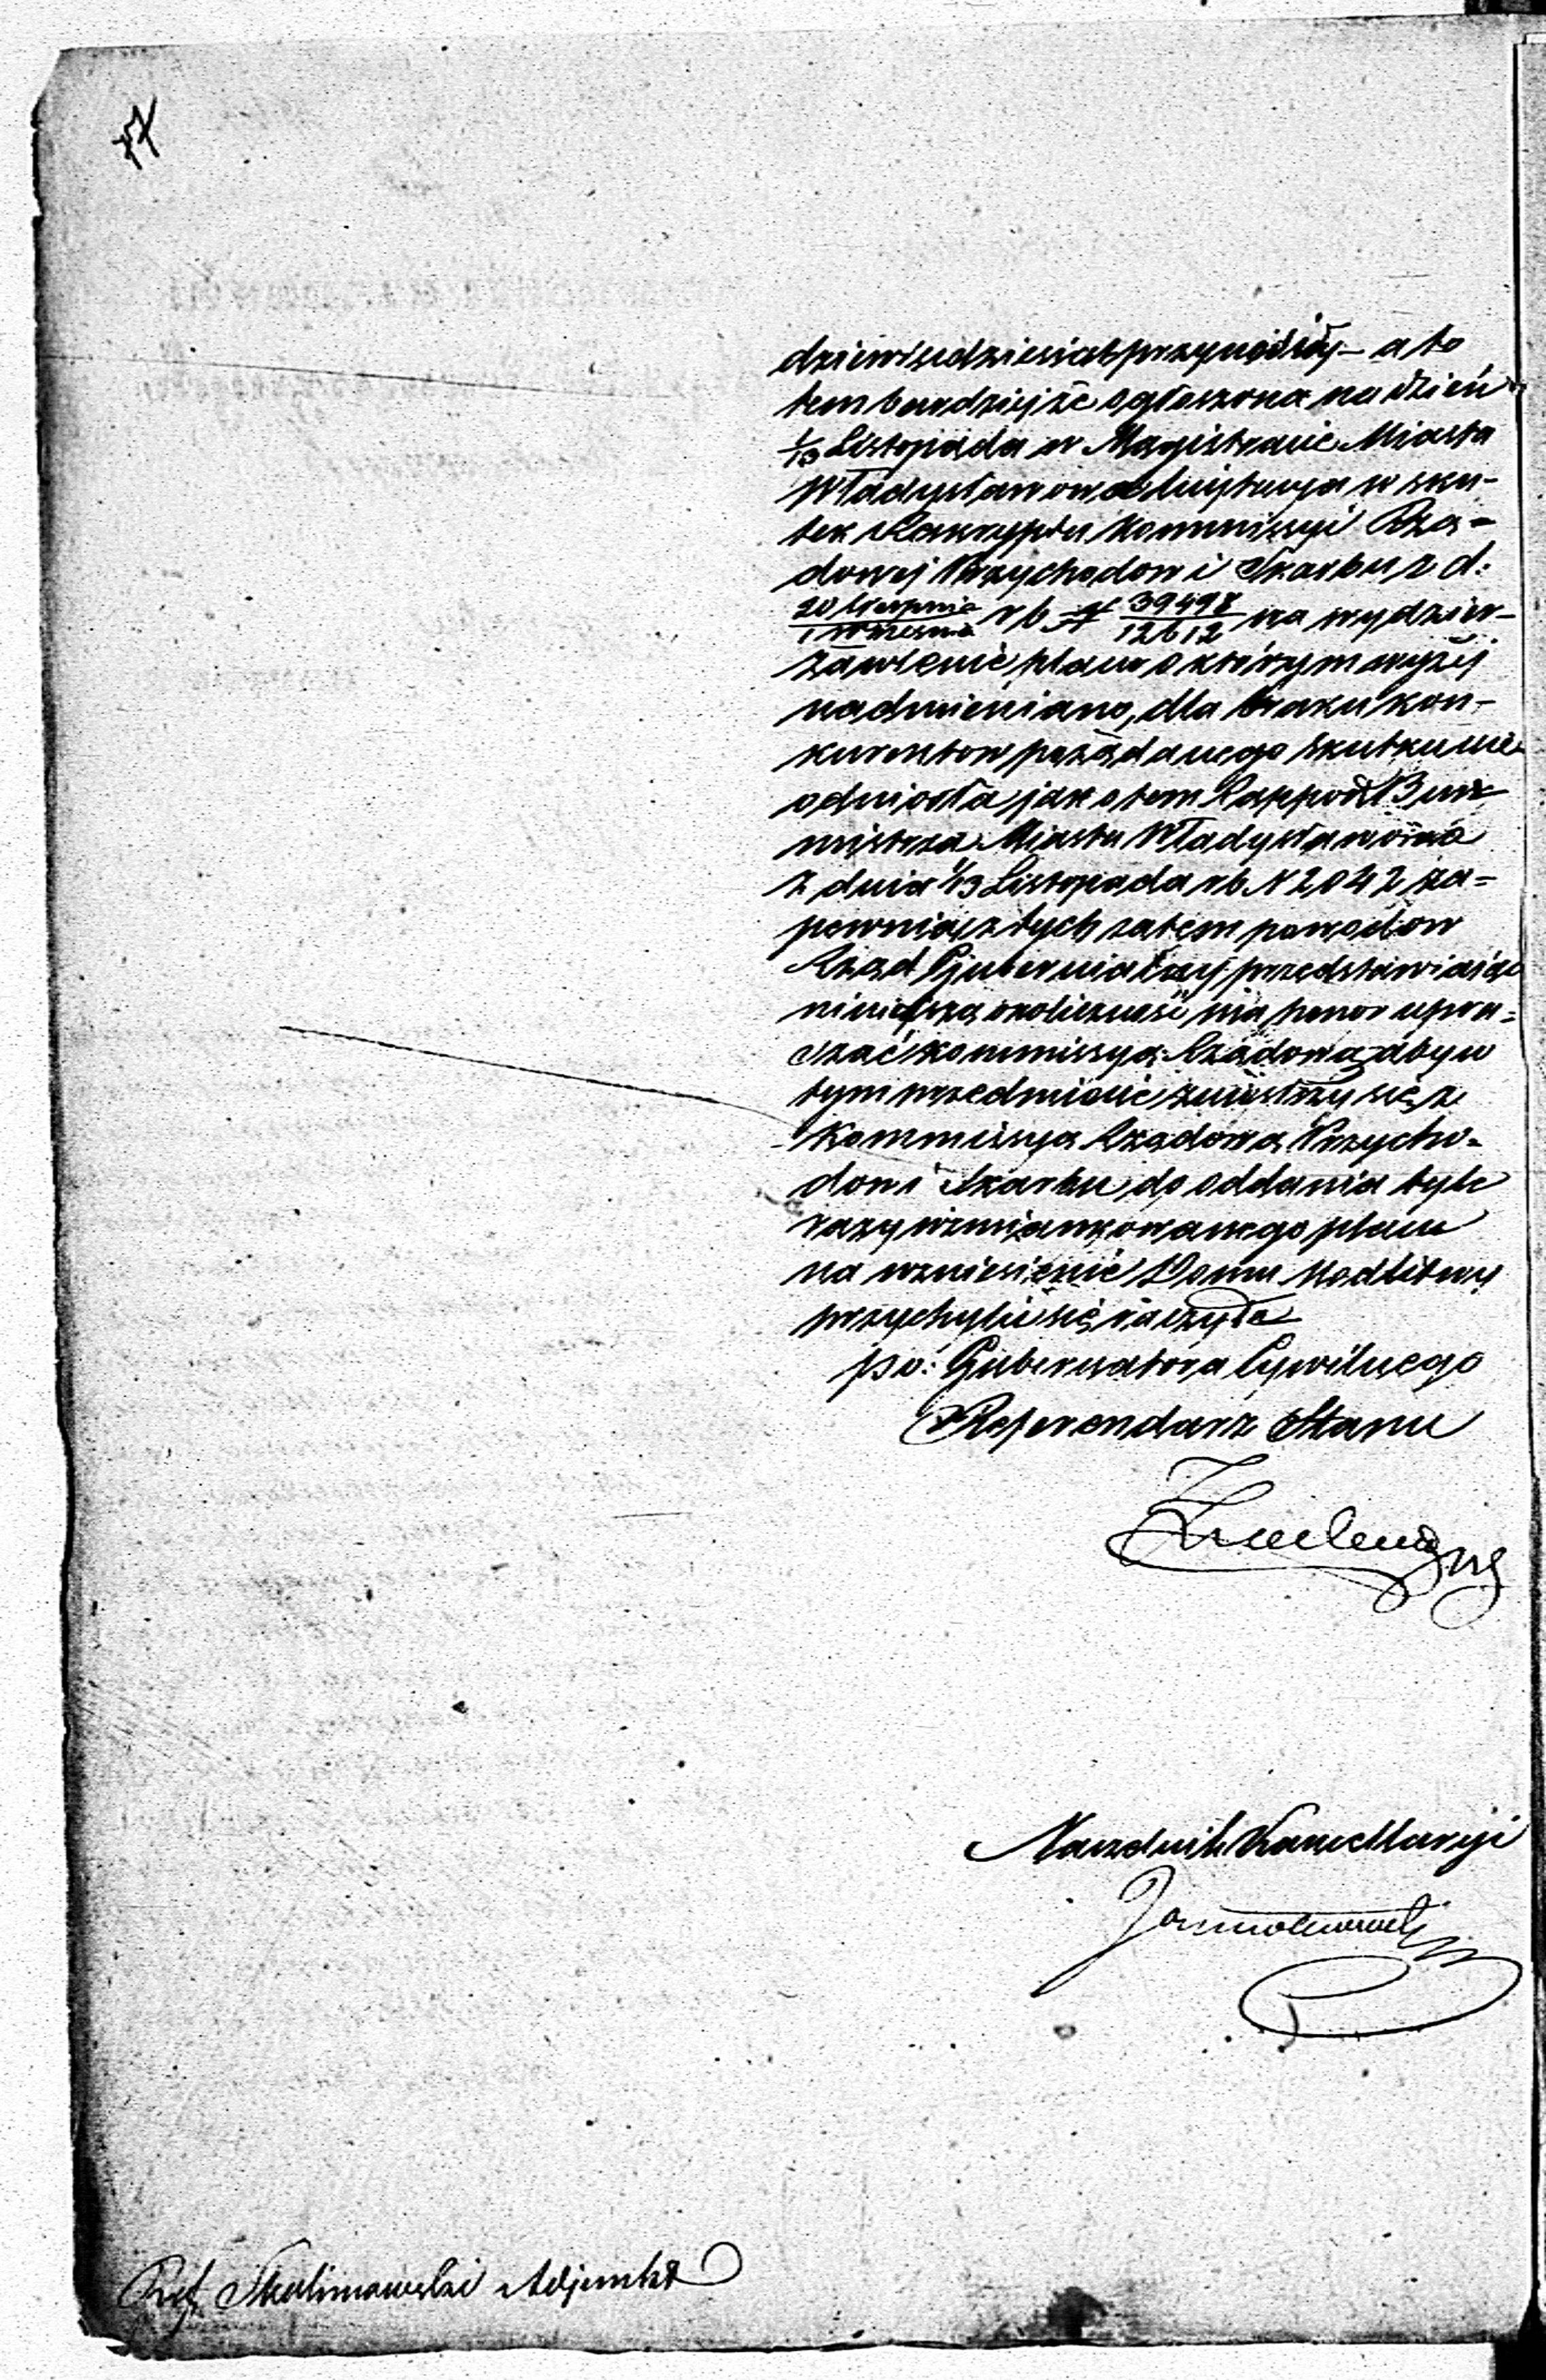 dziewięćdziesiąt przynosiły – a to
tem bardziej że ogłoszona na dzień
1/13 Listopada w Magistracie Miasta
Władysławowa licytacya w sku-
tek Reskryptu Kommissyi Rzą-
dowej Przychodow i Skarbu z d:
20 Sierpnia / 1 Września r b N 39498/12612 na wydzier-
żawienie placu o którym wyżej
nadmieniano, dla braku kon-
kurentow pożądanego skutku nie
odniosła jak o tem Rapport Burz
mistrza Miasta Władysławowa
z dnia 1/13 Listopada r b N 2042 za=
pewnia, z tych zatem powodow
Rząd Gubernialny przedstawiając
niniejszą okoliczność ma honor upra=
szać Kommissyą Rządową aby w
tym przedmiocie zniósłszy się z
Kommissyą Rządową Przycho-
dow i Skarbu do oddania tyle
razy wzmiankowanego placu
na wzniesienie Domu Modlitwy
przychylić się raczyła
po: Gubernatora Cywilnego
Referendarz Stanu
Naczelnik Kancellaryi
Ref Skulimowski Adjunkt